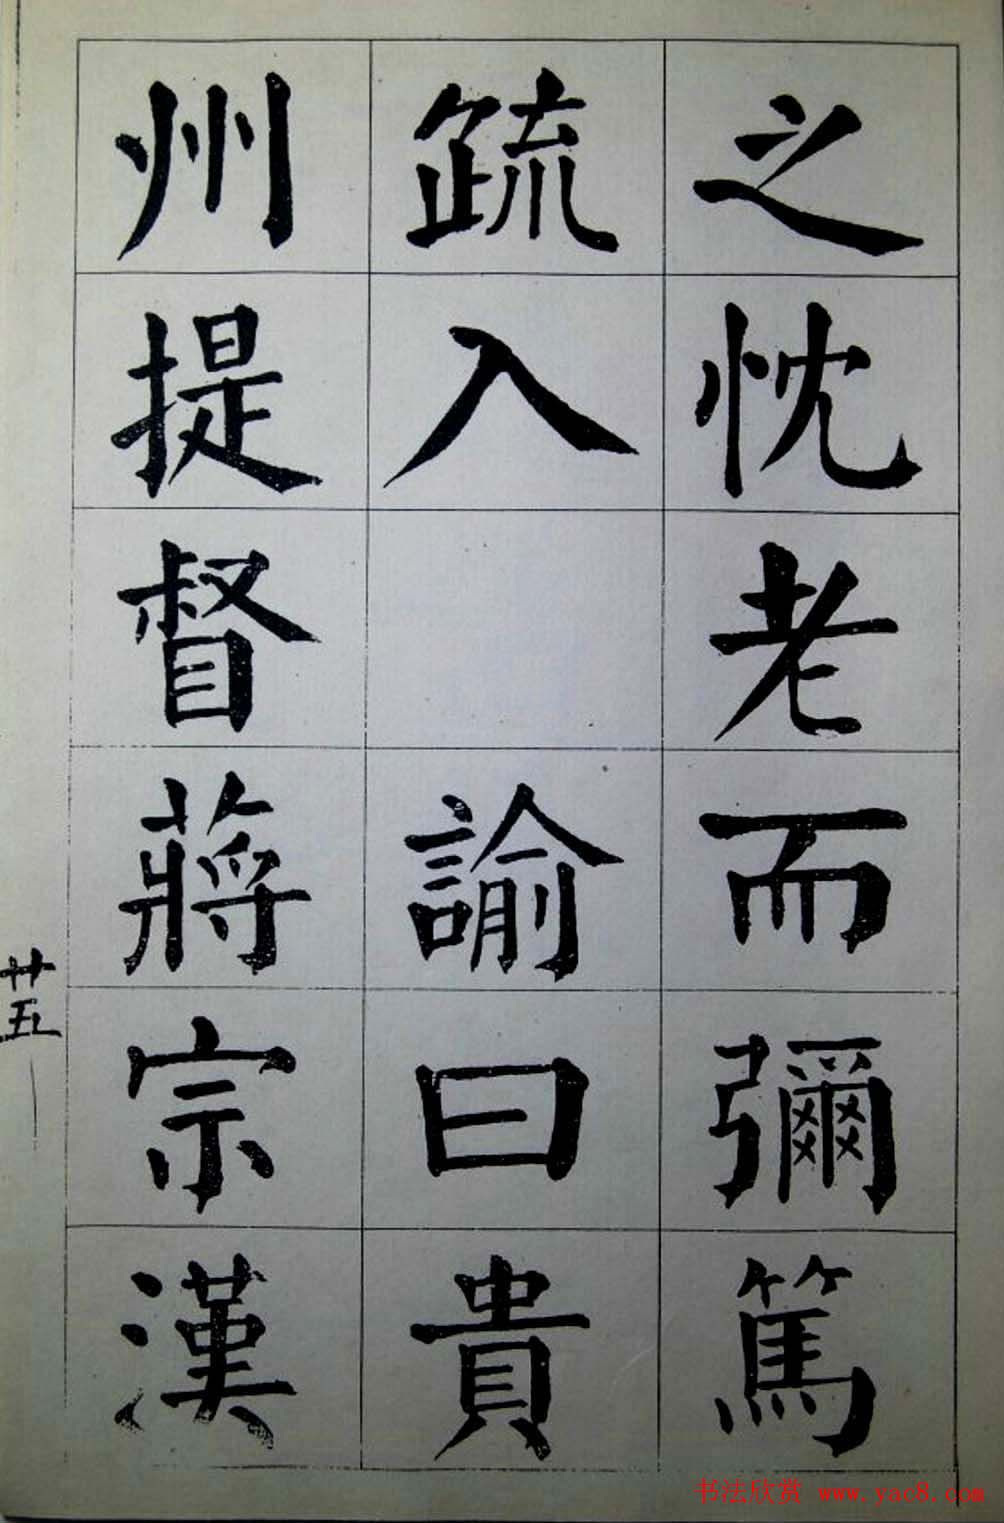 之忱老而彌篤
疏入 諭曰貴
州提督蔣宗漢
廿五
书法欣赏 www.yac8.com